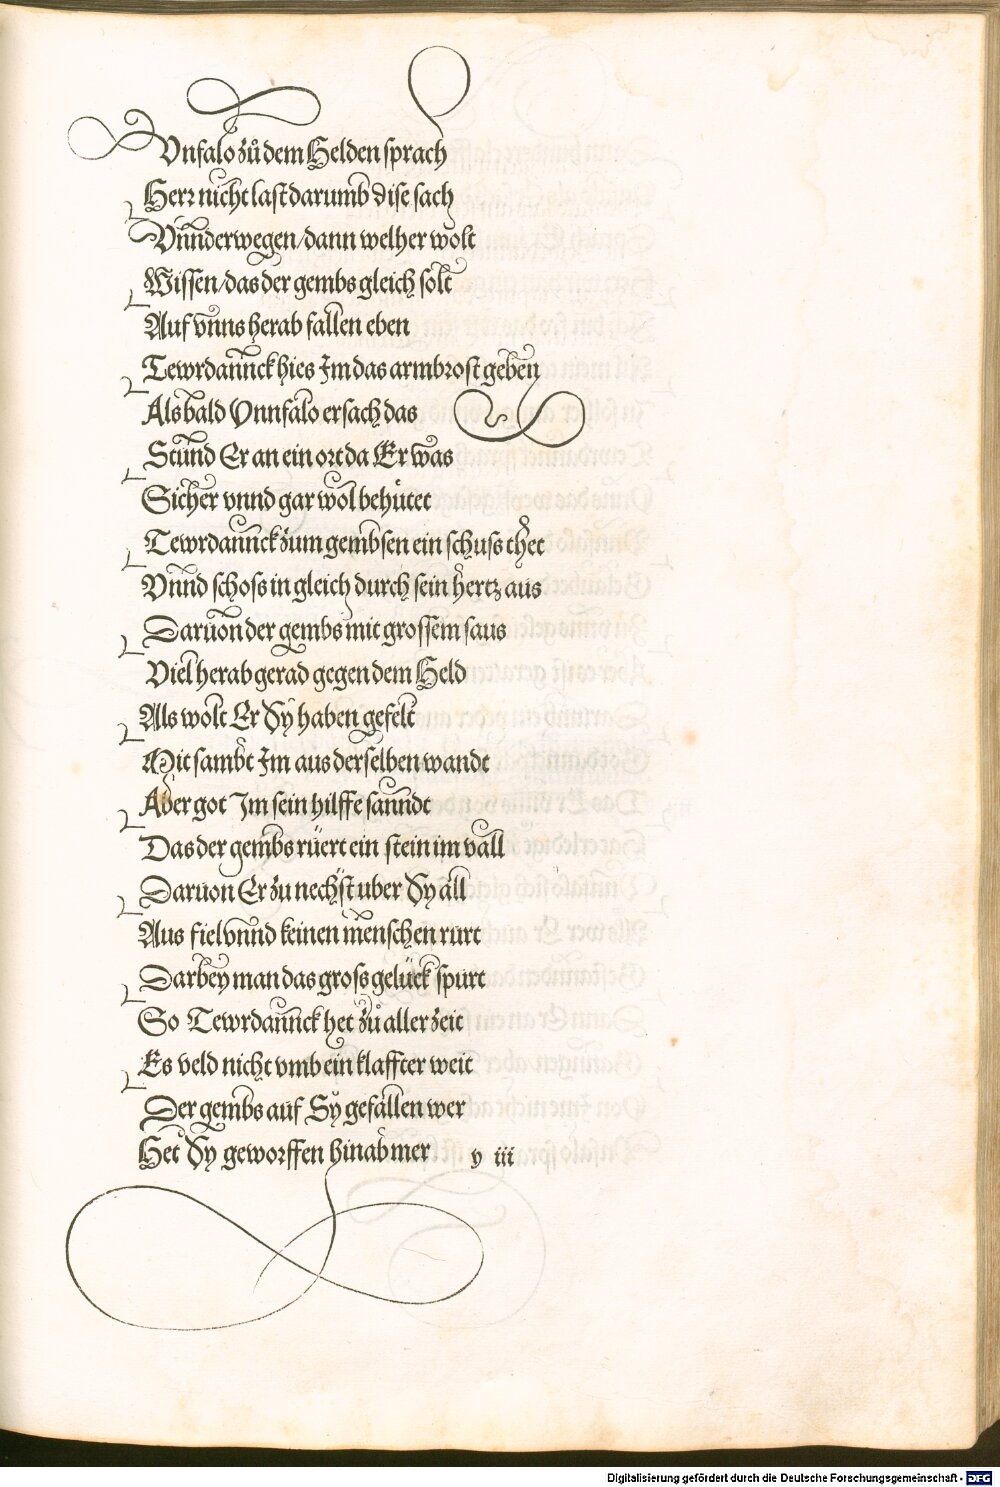 Vnfalo zů dem Helden sprach
Herr nicht last darumb dise sach
Vnnderwegen/dann welher wolt
Wissen/das der gembs gleich solt
Auf vnns herab fallen eben
Tewrdannck hies Im das armbrost geben
Als bald Vnnfalo ersach das
Stund Er an ein ort da Er was
Sicher vnnd gar wol behütet
Tewrdannck zum gembsen ein schuss thet
Vnnd schoss in gleich durch sein hertz aus
Daruon der gembs mit grossem saus
Viel herab gerad gegen dem Held
Als wolt Er Sy haben gefelt
Mit sambt Im aus derselben wandt
Aber got Im sein hilffe sanndt
Das der gembs rüert ein stein im vall
Daruon Er zu nechst uber Sy all
Aus fiel vnnd keinen menschen rurt
Darbey man das gross gelück spurt
So Tewrdannck het zů aller zeit
Es veld nicht vmb ein klaffter weit
Der gembs auf Sy gefallen wer
Het Sy geworffen hinab mer y iii
Digitalisierung gefördert durch die Deutsche Forschungsgemeinschaft - DFG